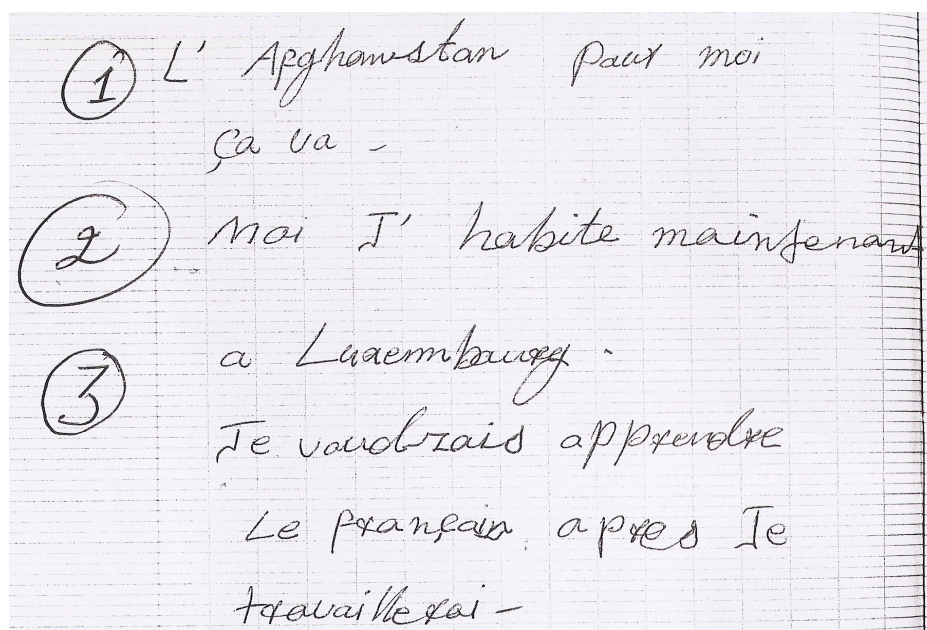 1 L' Afghanistan pour moi
ça va -
2 Moi J' habite maintenant
a Luxembourg .
3 Je voudrais apprendre
Le français apres Je
travaillerai -